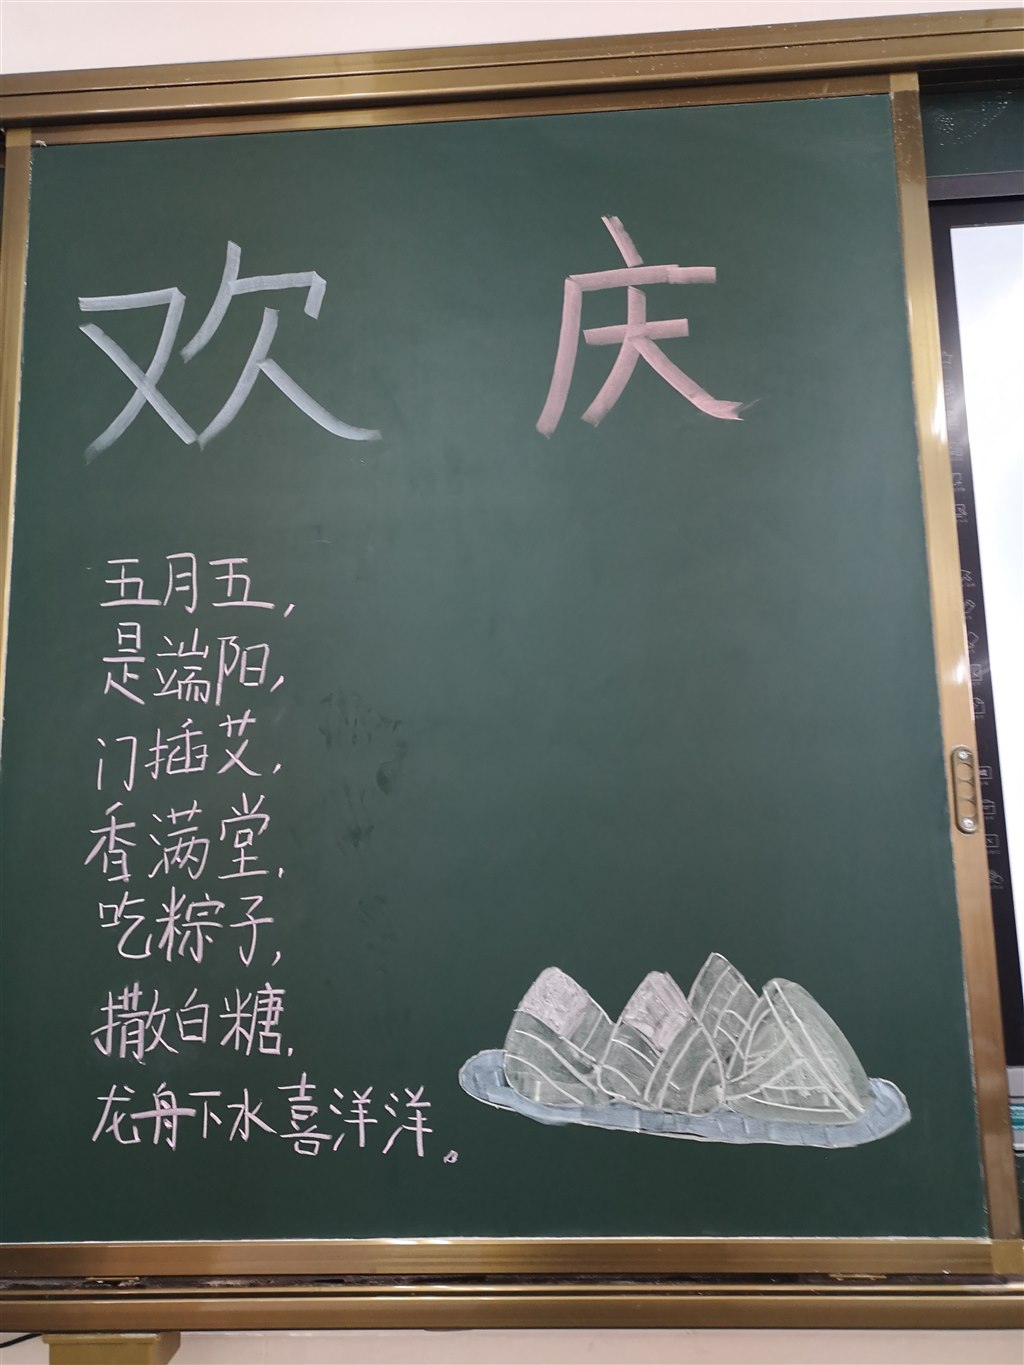 欢 庆
五月五,
是端阳,
门插艾,
香满堂,
吃粽子,
撒白糖,
龙舟下水喜洋洋。